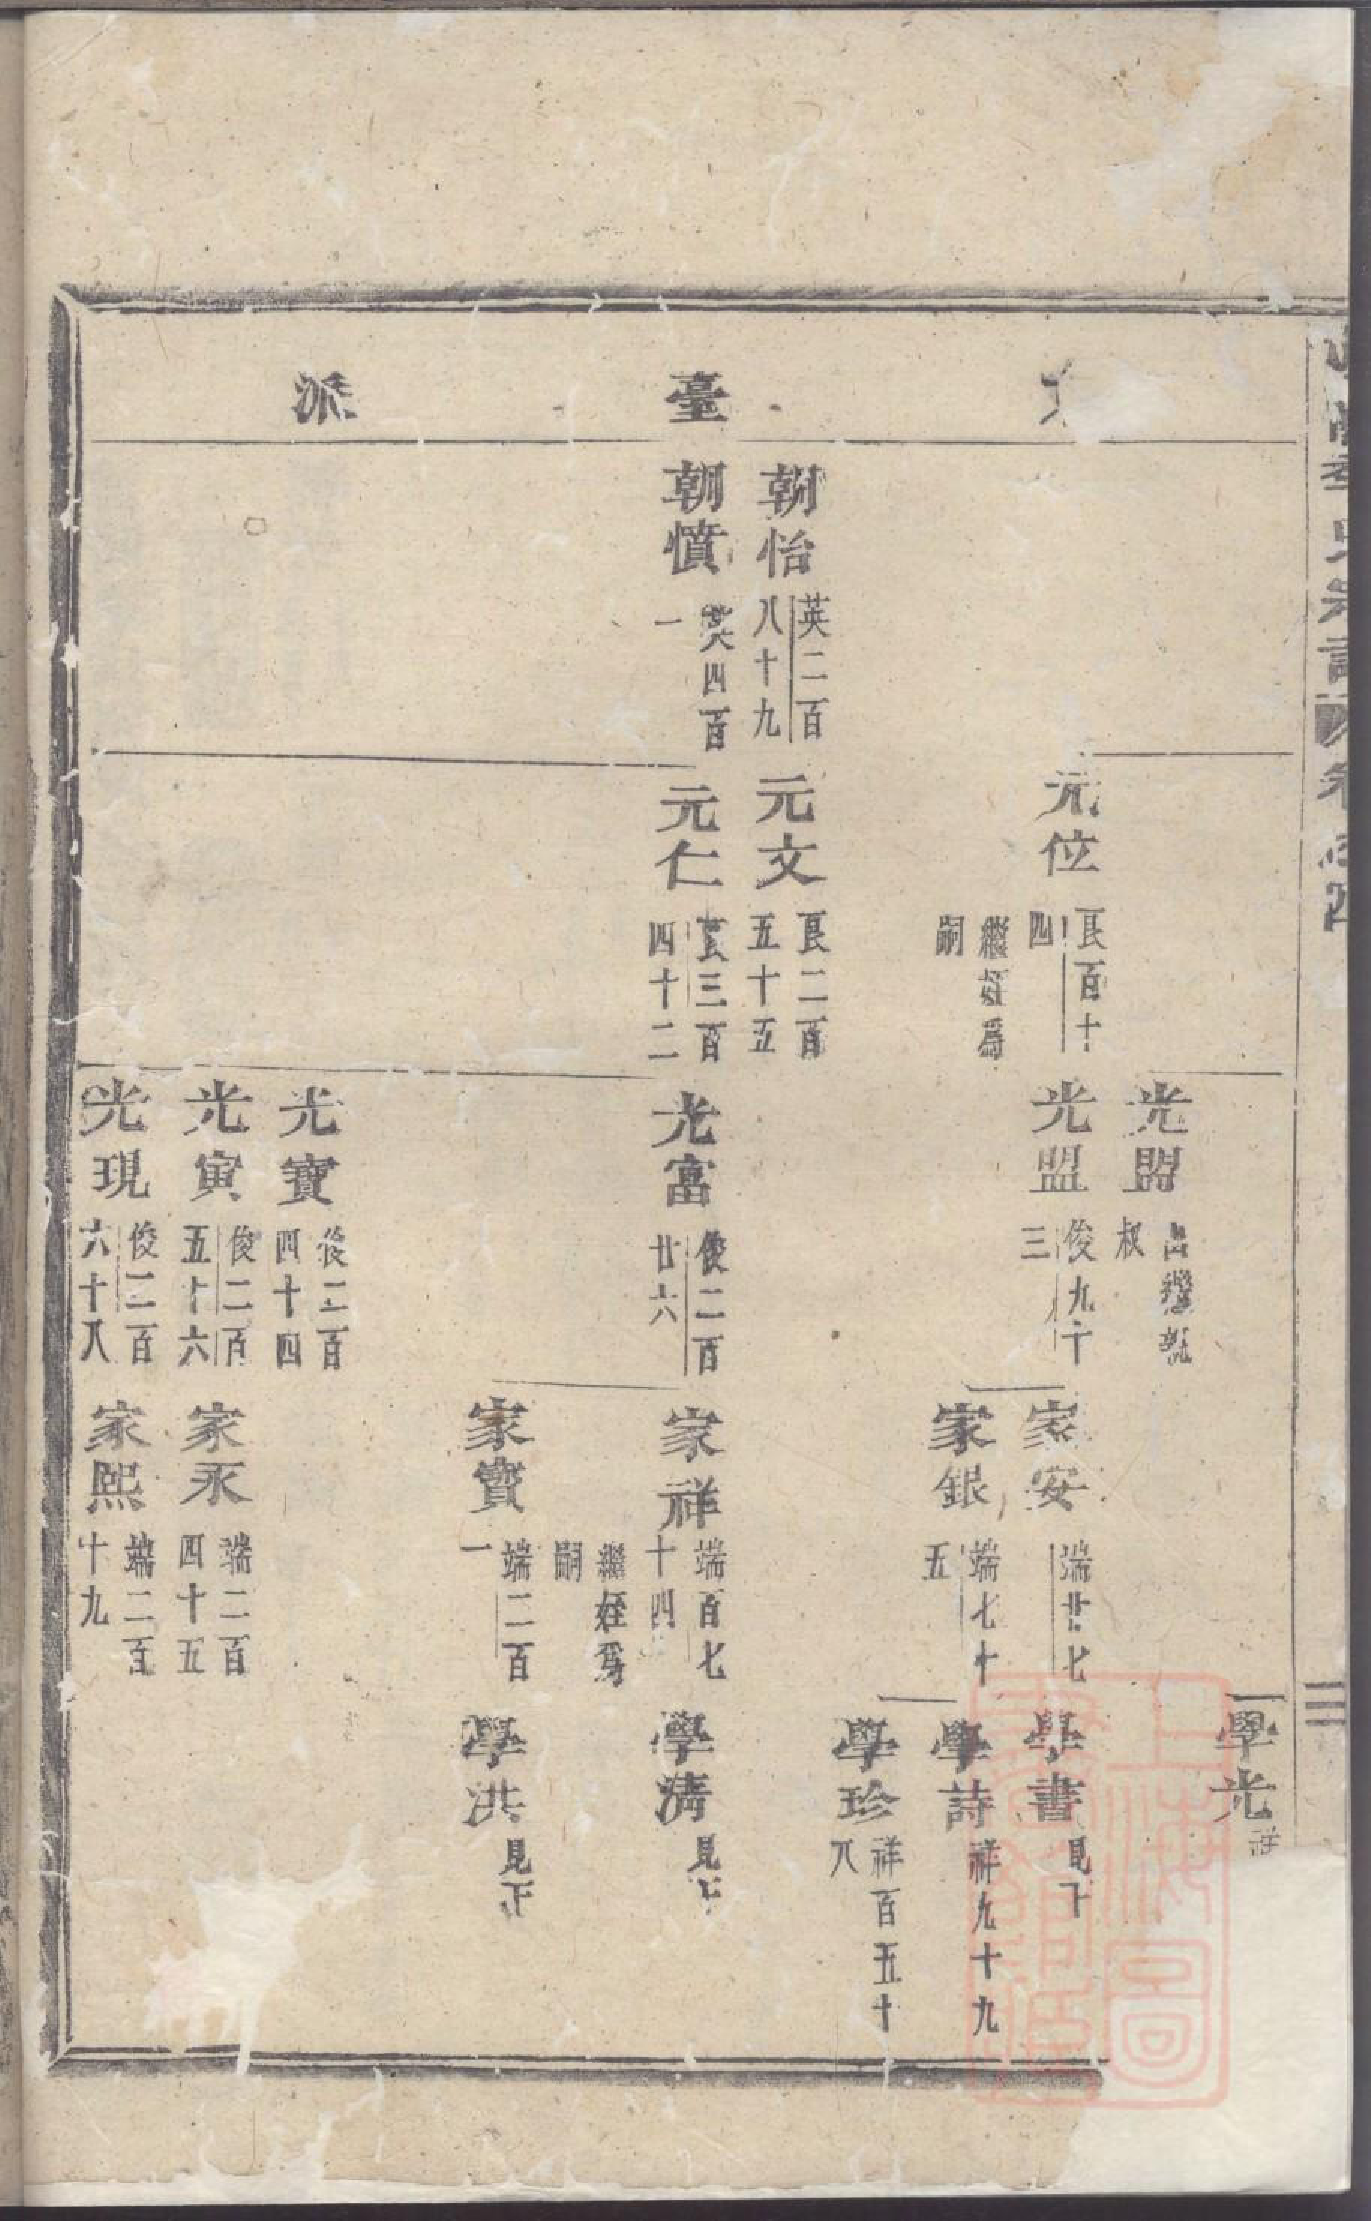 臺
派
朝怡 英二百八十九
朝憤 英四百一
元位 良百十四
繼姪爲嗣
元文 良二百五十五
元仁 良三百四十二
光盟 出繼親叔
光盟 俊九十三
光富 俊二百廿六
光寶 俊二百四十四
光寅 俊二百五十六
光現 俊二百六十八
家安 端廿七
家銀 端七十五
家祥 端百七十四
繼姪爲嗣
家寶 端二百一
家永 端二百四十五
家熙 端二百十九
學光 祥
學書 見下
學詩 祥九十九
學珍 祥百五十八
學清 見上
學洪 見下
上海圖書館藏